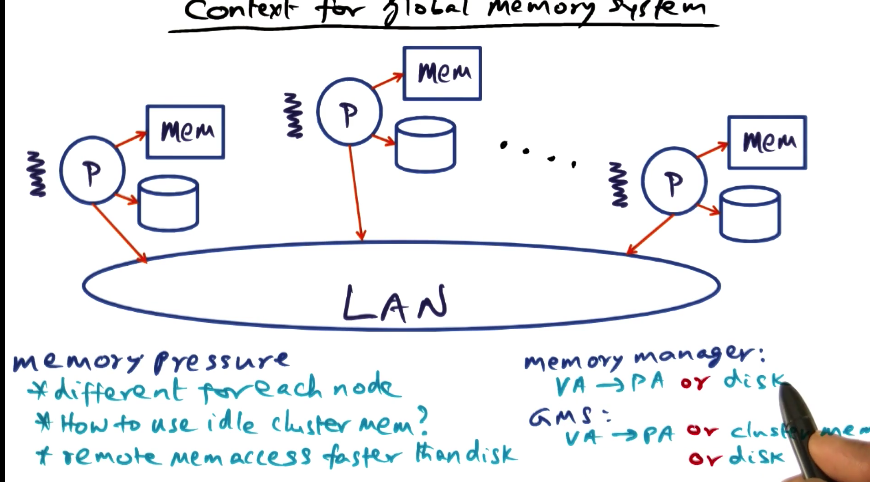 Context for global memory system
mem
P
mem
P
mem
P
LAN
memory pressure
* different for each node
* How to use idle cluster mem?
* remote mem access faster than disk
memory manager:
VA → PA or disk
GMS:
VA → PA or cluster mem
or disk